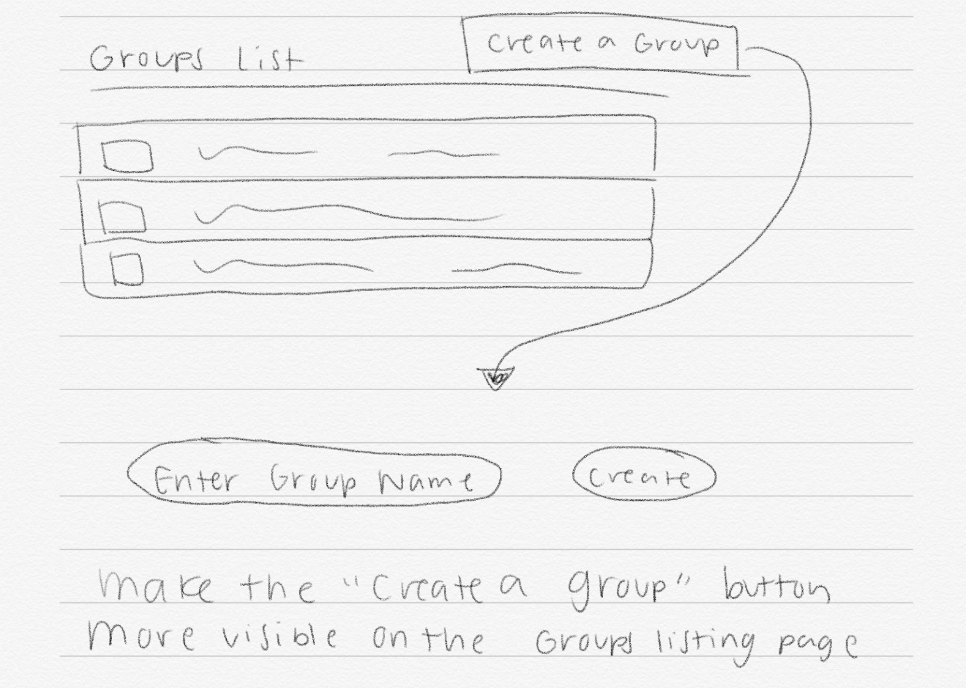 Groups List
Create a Group
Enter Group Name
Create
Make the "Create a group" button
more visible on the Groups listing page